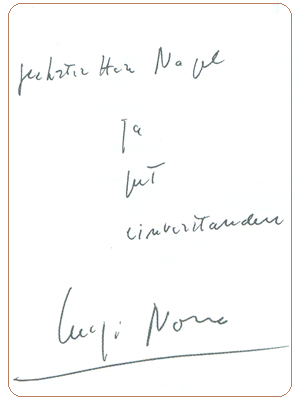 geehrter Herr Nagel
ja
gut
einverstanden
Luigi Nono